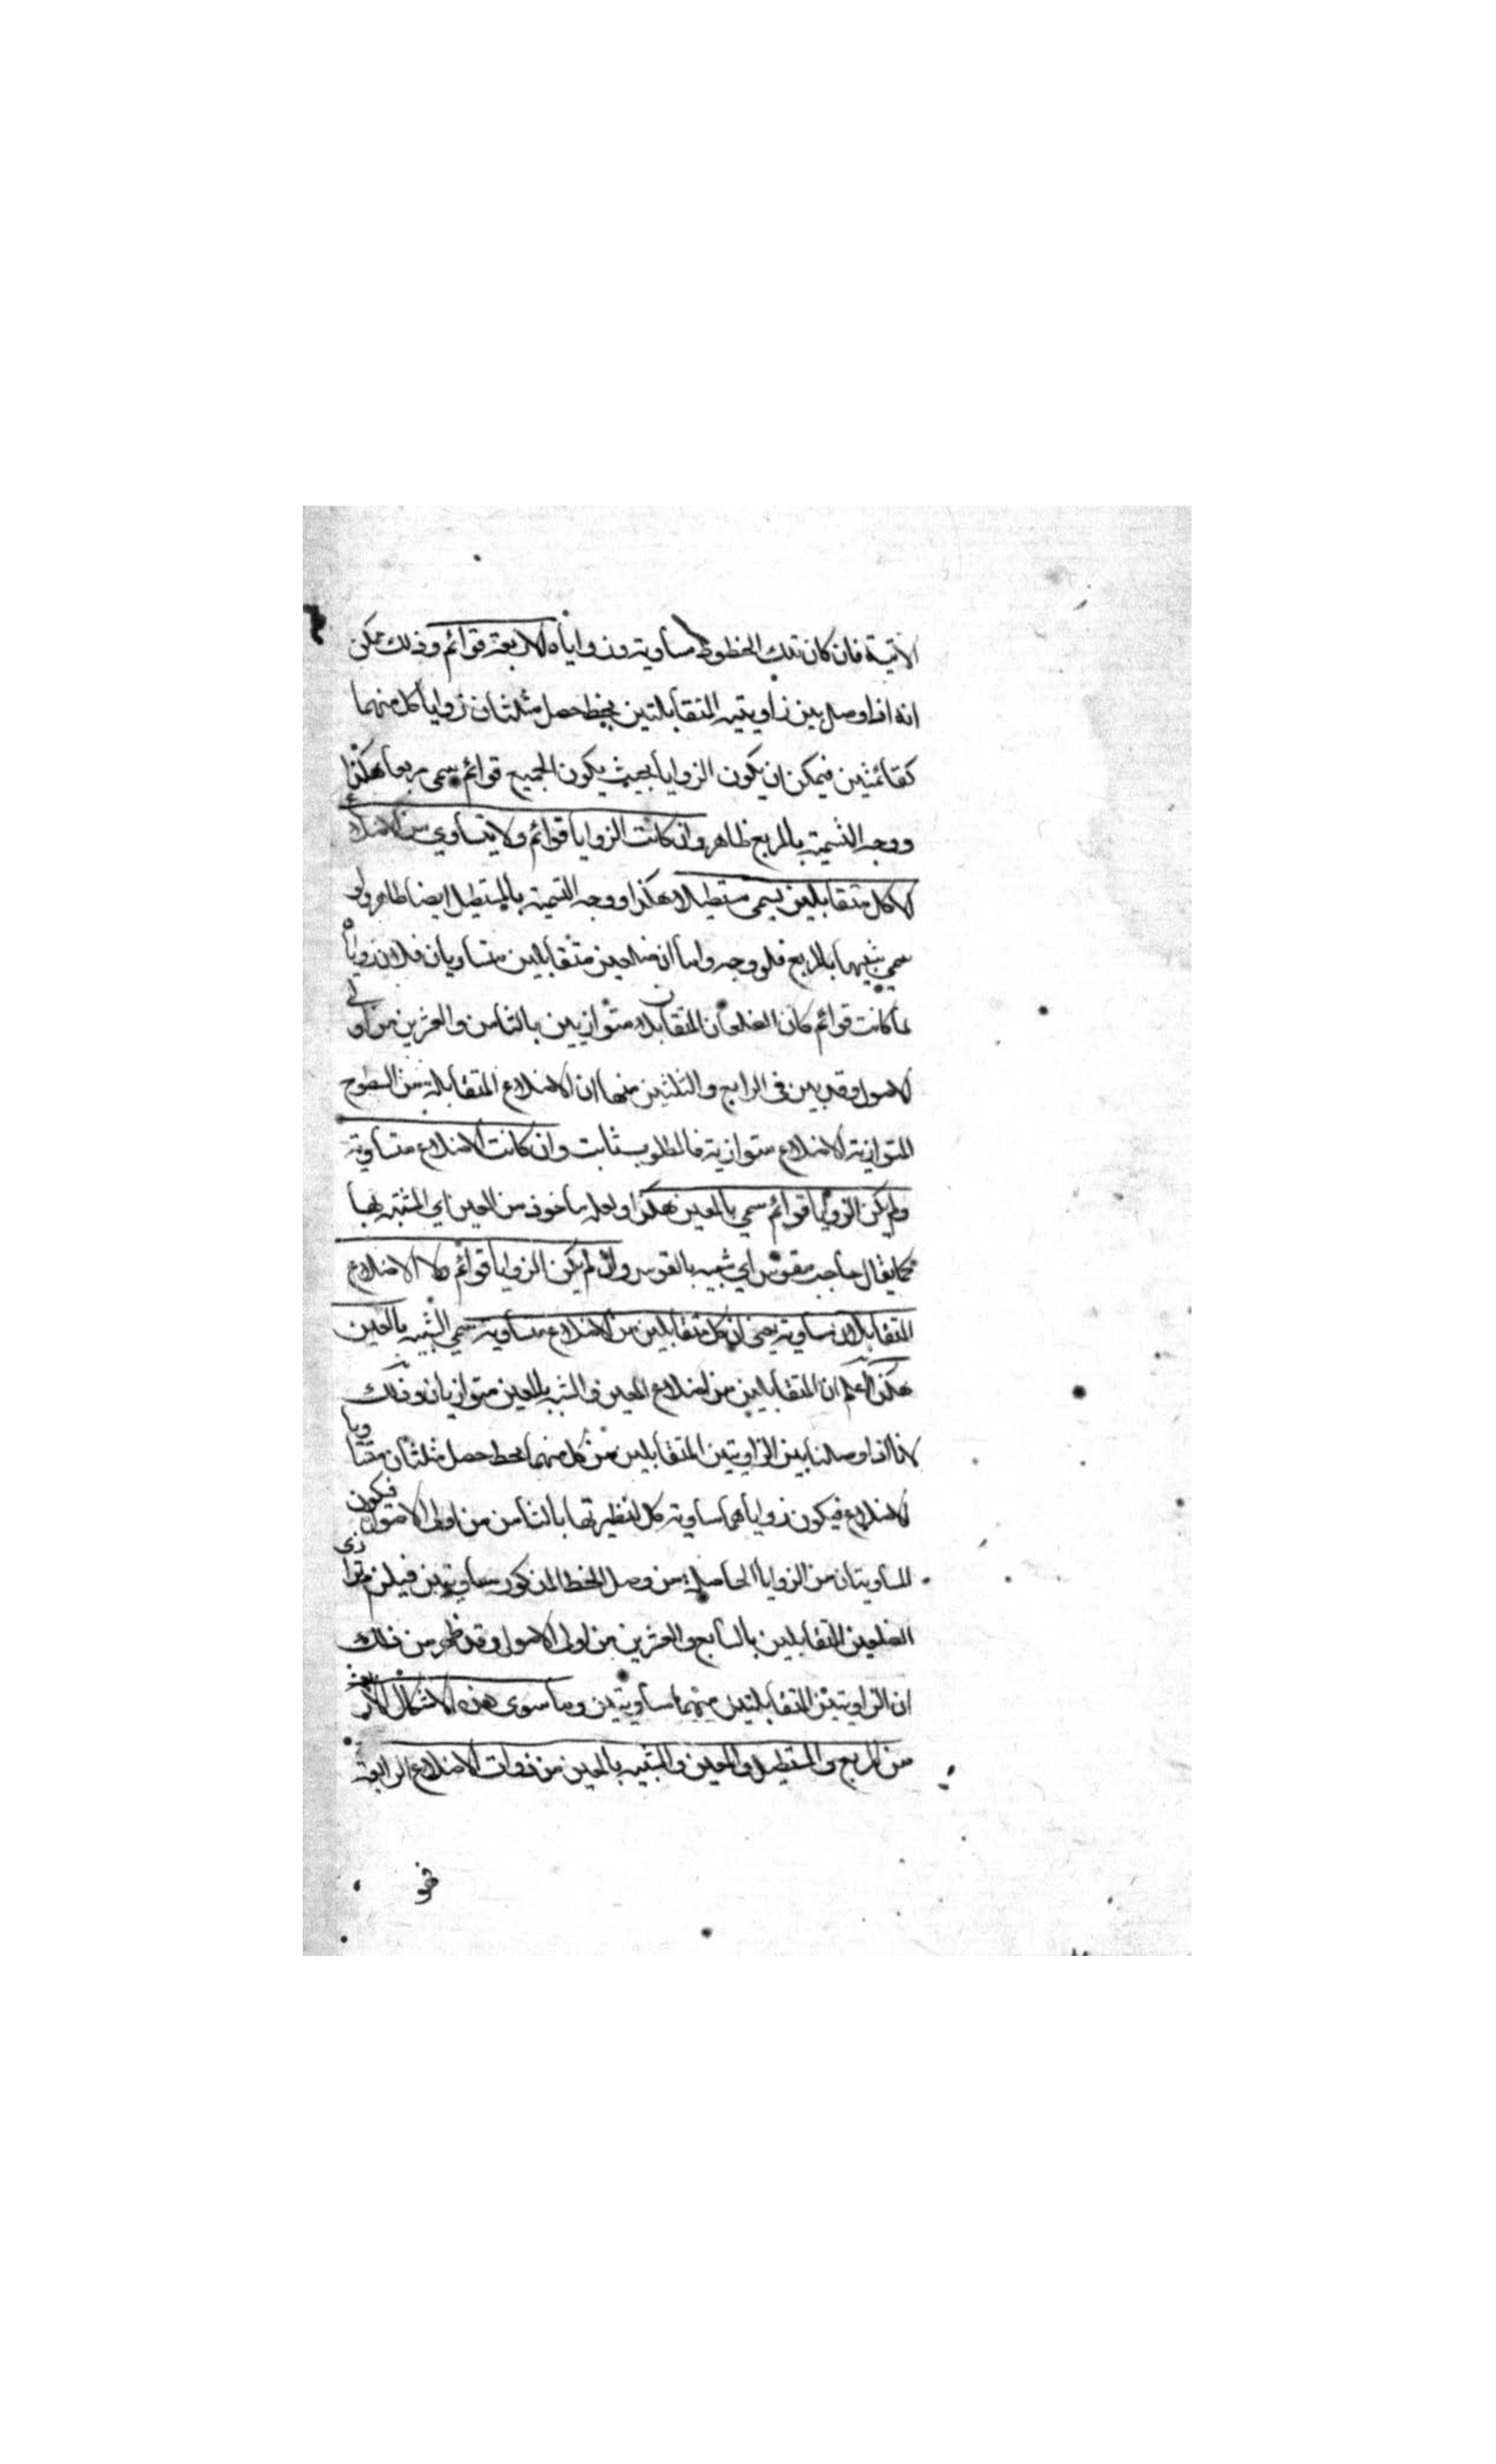 الآتية فان كان تلك الخطوط متساوية وزواياه الاربعة قوائم وذلك يمكن
انه اذا وصل بين زاويتيه المتقابلتين بخط حصل مثلثان زوايا كل منهما
كقائمتين فيمكن ان يكون الزوايا بحيث يكون الجميع قوائم سمي مربعا هكذا
ووجه التسمية بالمربع ظاهر وان كانت الزوايا قوائم ولا يتساوي من الاضلاع
الا كل متقابلين يسمى مستطيلا هكذا ووجه التسمية بالمستطيل ايضا ظاهر ولو
سمي شبيها بالمربع فله وجه واما ان ضلعين متقابلين متساويان فلان زواياه
لما كانت قوائم كان الضلعان المتقابلان متوازيين بالثامن والعشرين من اولى
الاصول وقد بين في الرابع والثلثين منها ان الاضلاع المتقابلة من السطوح
المتوازية الاضلاع متوازية فالمطلوب ثابت وان كانت الاضلاع متساوية
ولم يكن الزوايا قوائم سمي بالمعين هكذا ولعله ماخوذ من العين اي المشبه بها
كما يقال حاجب مقوس اي شبيه بالقوس وان لم يكن الزوايا قوائم ولا الاضلاع
المتقابلان متساوية يعني ان كل متقابلين من الاضلاع متساوية سمي الشبيه بالمعين
هكذا اعلم ان المتقابلين من اضلاع المعين والشبه بالمعين متوازيان وذلك
لانا اذا وصلنا بين الزاويتين المتقابلين من كل منهما بخط حصل مثلثان متساويا
الاضلاع فيكون زواياهما متساوية كل لنظيرتها بالثامن من اولى الاصول فيكون
المتساويتان من الزوايا الحاصلة من وصل الخط المذكور متساويتين فيلزم توازي
الضلعين المتقابلين بالسابع والعشرين من اولى الاصول وقد ظهر من ذلك
ان الزاويتين المتقابلتين منهما متساويتين وما سوى هذه الاشكال الاربعة
من المربع والمستطيل والمعين والشبيه بالمعين من ذوات الاضلاع الاربعة